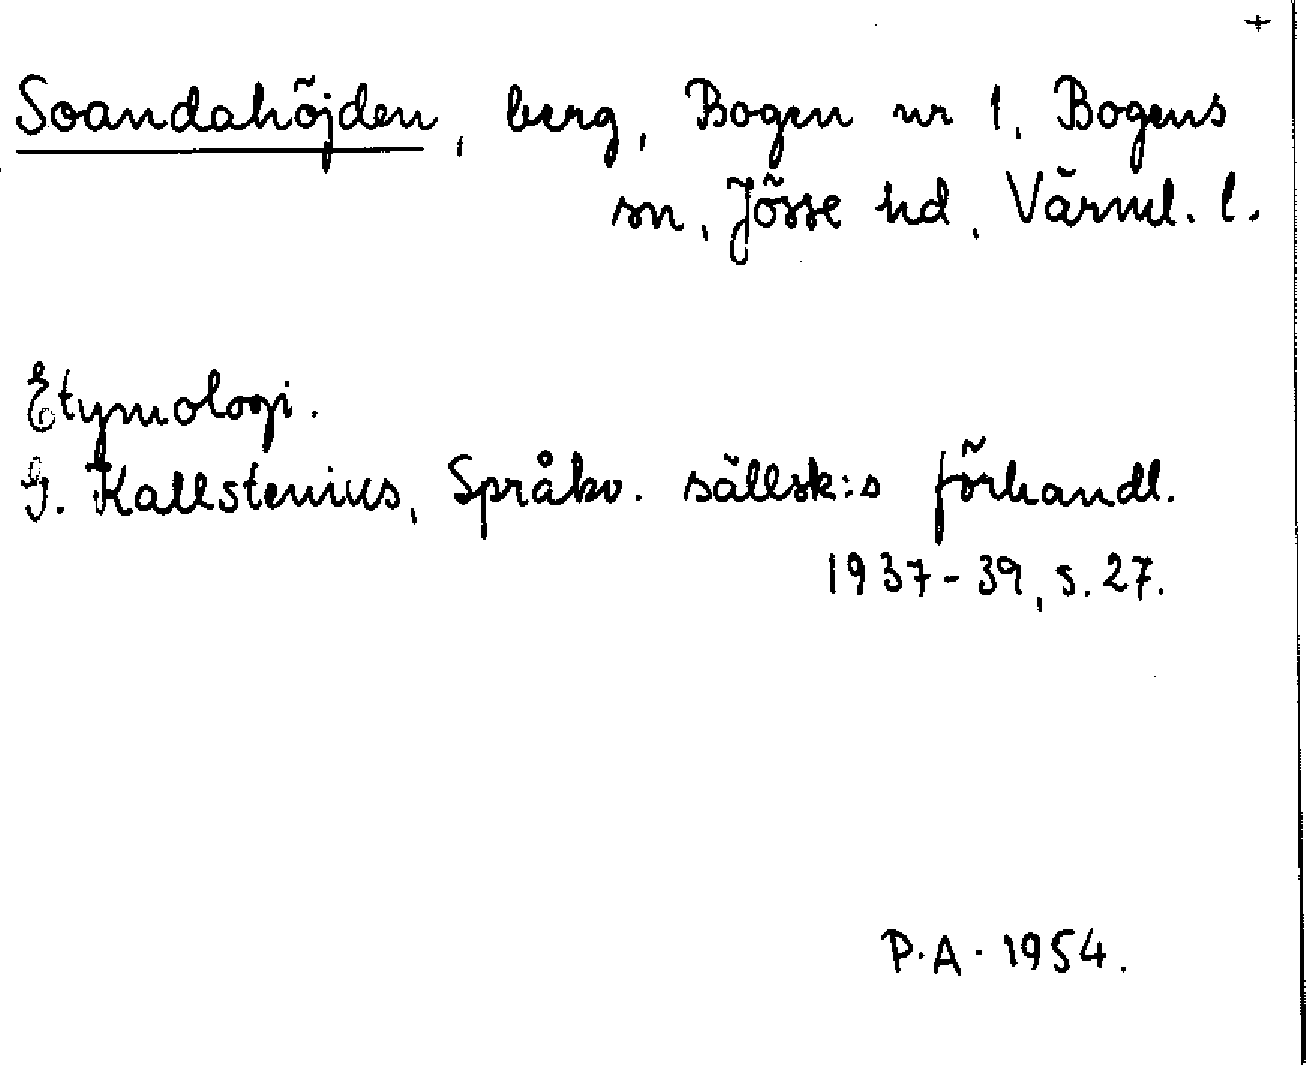 +
Soandahöjden, berg, Bogen nr 1, Bogens
sn, Jösse hd, Värml. l.
Etymologi.
G. Kallstenius, Språkv. sällsk:s förhandl.
1937-39, s. 27.
P.A. 1954.